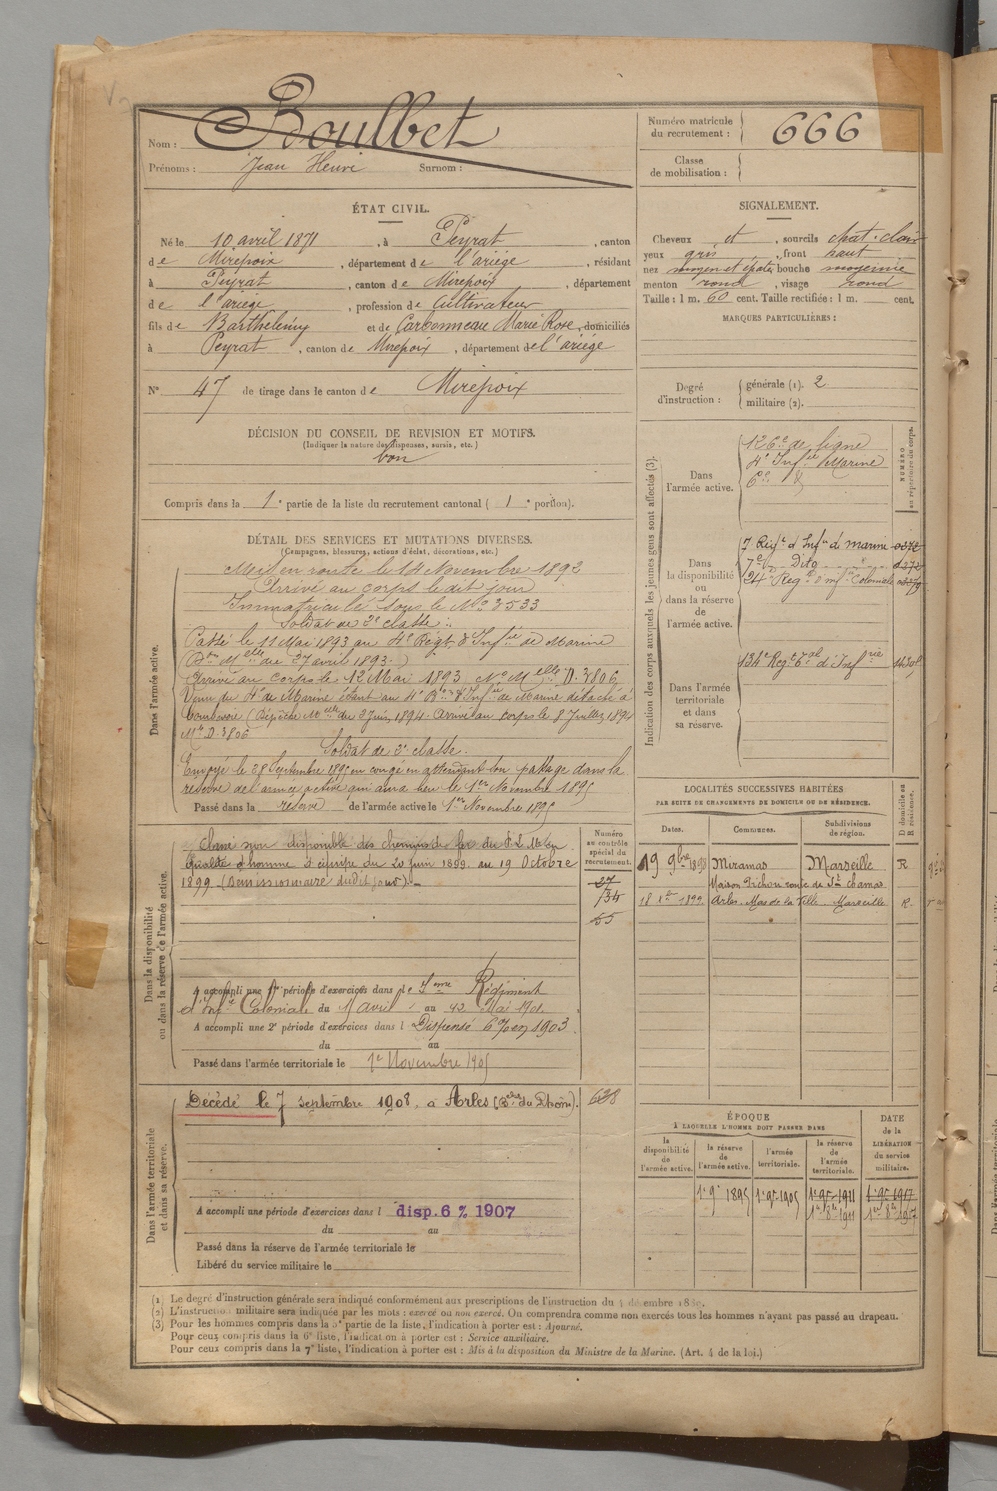 Nom : Boulbet
Prénoms : Jean Henri Surnom :
Numéro matricule du recrutement : 666
Classe de mobilisation :
ÉTAT CIVIL.
Né le 10 avril 1871, à Peyrat, canton
de Mirepoix, département de l'ariège, résidant
à Peyrat, canton de Mirepoix, département
de l'ariège, profession de Cultivateur
fils de Barthélemy et de Carbonneau Marie Rose, domiciliés
à Peyrat, canton de Mirepoix, département de l'ariège
N° 47 de tirage dans le canton de Mirepoix
SIGNALEMENT.
Cheveux et, sourcils chat. clair
yeux gris, front haut
nez moyen et épaté bouche moyenne
menton rond, visage rond
Taille : 1 m. 60 cent. Taille rectifiée : 1 m. cent.
MARQUES PARTICULIÈRES :
Degré d'instruction : générale (1). 2
militaire (2).
DÉCISION DU CONSEIL DE REVISION ET MOTIFS.
(Indiquer la nature des dispenses, sursis, etc.)
bon
Compris dans la 1e partie de la liste du recrutement cantonal ( 1e portion).
DÉTAIL DES SERVICES ET MUTATIONS DIVERSES.
(Campagnes, blessures, actions d'éclat, décorations, etc.)
Dans l'armée active.
Mis en route le 14 Novembre 1892
Arrivé au corps le dit jour
Immatriculé sous le N° 3533
Soldat de 2e classe.
Passé le 11 Mai 1893 au 4e Régt. d'Infie de Marine
(Don Melle du 27 avril 1893.)
Arrivé au corps le 12 Mai 1893 N° Melle D. 3806
Venu du 4e de Marine étant au 4e Bon d'Infie de Marine détaché à
(Dépêche Melle du 2 Juin 1894. Arrivé au corps le 8 Juillet 1894
Mle D. 3806
Soldat de 2e classe.
Envoyé le 28 Septembre 1895 en congé en attendant son passage dans la
réserve de l'armée active qui aura lieu le 1er Novembre 1895
Passé dans la réserve de l'armée active le 1er Novembre 1895
Indication des corps auxquels les jeunes gens sont affectés (3).
NUMÉRO au répertoire du corps.
Dans l'armée active.
126e de ligne
4e Infie Marine
6e
Dans la disponibilité ou dans la réserve de l'armée active.
7 Régt d'Infie d marine
7e Dito
24e Reg d'infie Coloniale
Dans l'armée territoriale et dans sa réserve.
134e Regt tal d'Infrie
LOCALITÉS SUCCESSIVES HABITÉES
PAR SUITE DE CHANGEMENTS DE DOMICILE OU DE RÉSIDENCE.
Dates. Communes. Subdivisions de région. D domicile ou R résidence.
19 9bre 1898 Miramas Marseille R
Maison Pichou route de St chamas
18 1899 Arles. Mas de la Ville Marseille R.
Dans la disponibilité ou dans la réserve de l'armée active.
Classé non disponible des chemins de fer du P.L.M. en
qualité d'homme d'équipe du 20 juin 1899. au 19 Octobre
1899 (Démissionnaire dudit jour).
Numéro au contrôle spécial du recrutement.
27
134
55
A accompli une 1re période d'exercices dans le Régiment
d'Infie Coloniale du avril au Mai 1901
A accompli une 2e période d'exercices dans l Dispensé 6% en 1903
du au
Passé dans l'armée territoriale le 1er Novembre 1905
Dans l'armée territoriale et dans sa réserve.
Décédé le 7 septembre 1908. à Arles (Bches du Rhône). 628
A accompli une période d'exercices dans l disp. 6 % 1907
du au
Passé dans la réserve de l'armée territoriale le
Libéré du service militaire le
ÉPOQUE
À LAQUELLE L'HOMME DOIT PASSER DANS
la disponibilité de l'armée active. la réserve de l'armée active. l'armée territoriale. la réserve de l'armée territoriale.
DATE de la LIBÉRATION du service militaire.
1er 9re 1895 1er 9re 1905 1er 9re 1911 1er 9re 1917
1er 8re 1911 1er 8re 1917
(1) Le degré d'instruction générale sera indiqué conformément aux prescriptions de l'instruction du 4 décembre 1889.
(2) L'instruction militaire sera indiquée par les mots : exercé ou non exercé. On comprendra comme non exercés tous les hommes n'ayant pas passé au drapeau.
(3) Pour les hommes compris dans la 5e partie de la liste, l'indication à porter est : Ajourné.
Pour ceux compris dans la 6e liste, l'indication à porter est : Service auxiliaire.
Pour ceux compris dans la 7e liste, l'indication à porter est : Mis à la disposition du Ministre de la Marine. (Art. 4 de la loi.)